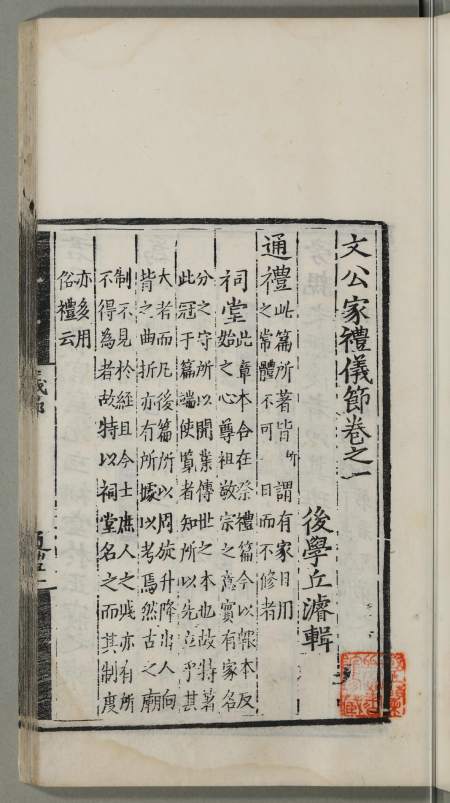 文公家禮儀節卷之一
後學丘濬輯
通禮
此篇所著皆所謂有家日用
之常體不可一日而不修者
祠堂
此章本合在祭禮篇今以報本反
始之心尊祖敬宗之意實有家名
分之守所以開業傳世之本也故特著
此冠于篇端使覽者知所以先立乎其
大者而凡後篇所以周旋升降出入向
背之曲折亦有所據以考焉然古之廟
制不見於經且今士庶人之賤亦有所
不得為者故特以祠堂名之而其制度
亦多用
俗禮云